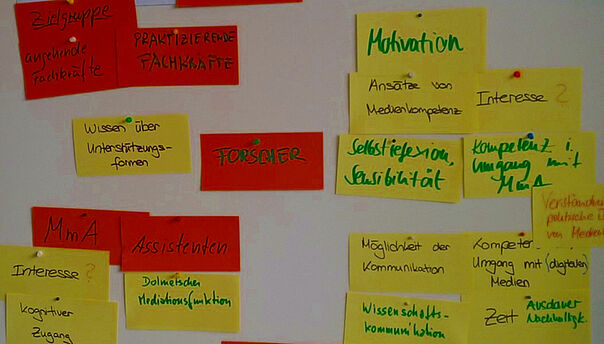 Zielgruppe
angehende
Fachkräfte
PRAKTIZIERENDE
FACHKRÄFTE
Motivation
Ansätze von
Medienkompetenz
Interesse ?
Wissen über
Unterstützungs-
formen
FORSCHER
Selbstreflexion,
Sensibilität
Kompetenz i.
Umgang mit
MmA
Verständnis
politische
von Medien
MmA
Assistenten
Interesse ?
Dolmetscher
Mediationsfunktion
Kognitiver
Zugang
Möglichkeit der
Kommunikation
Umgang mit (digitalen)
Medien
Wissenschafts-
kommunikation
Zeit
Ausdauer
Nachhaltigk.